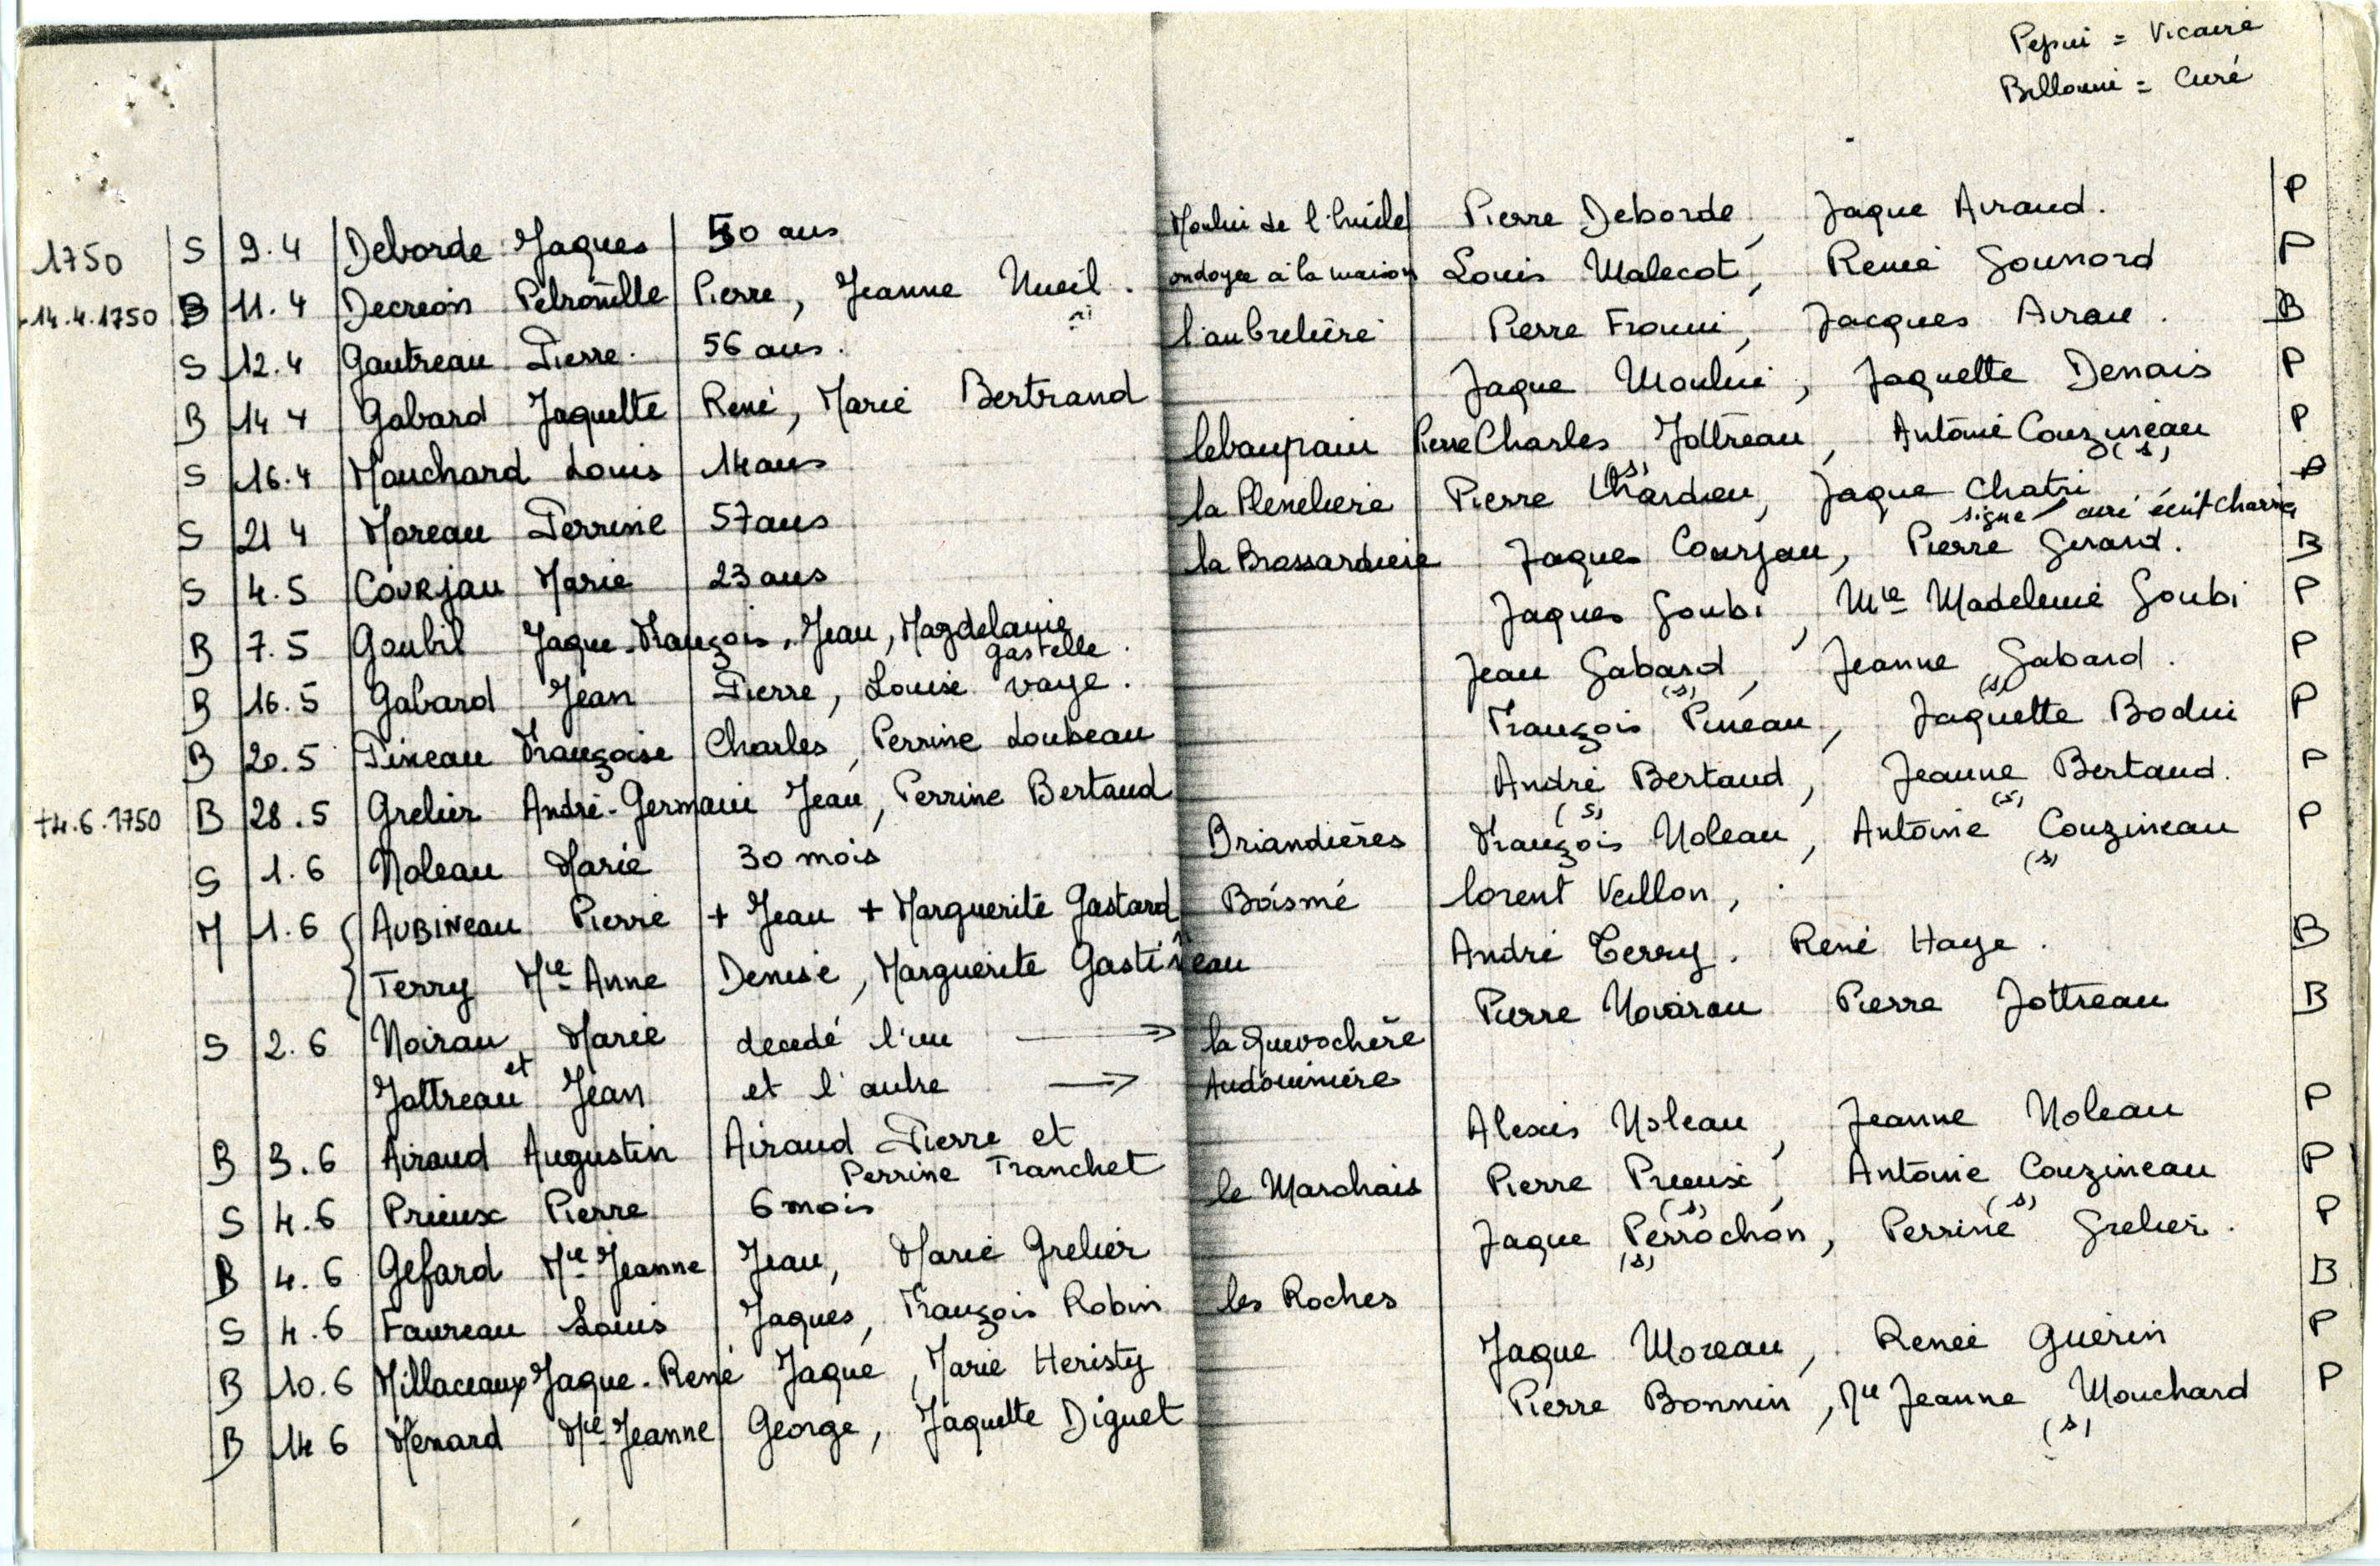 Pepin = Vicaire
Billonni = Curé
1750 S 9.4 Deborde Jaques 50 ans Moulin de l'huile Pierre Deborde, Jaque Airaud. P
14.4.1750 B 11.4 Decreon Petronille Pierre, Jeanne Nueil. ondoyée à la maison Louis Malecot, Renée Gounord P
S 12.4 Gautreau Pierre. 56 ans. l'aubrelière Pierre Fronni, Jacques Airau. B
B 14 4 Gabard Jaquette René, Marie Bertrand Jaque Moulin, Jaquette Denais P
S 16.4 Mouchard Louis 14 ans lebaupain Pierre Charles Jottreau, Antoine Couzineau (s) P
S 21 4 Moreau Perrine 57 ans la Plenelière Pierre Chardieu (s), Jaque Chatri P
signe curé écrit Charrie
S 4.5 COURJau Marie 23 ans la Brossardière Jaques Courjau, Pierre Girard. B
B 7.5 Goubil Jaque-François, Jean, Magdelaine Gastelle. Jaques Goubi, Mie Madeleine Goubi P
B 16.5 Gabard Jean Pierre, Louise Vaye. Jean Gabard (s), Jeanne Gabard (s). P
B 20.5 Pineau Françoise Charles, Perrine Loubeau François Pineau, Jaquette Bodin P
+4.6.1750 B 28.5 Grelier André-Germain Jean, Perrine Bertaud André Bertaud (s), Jeanne Bertaud (s). P
S 1.6 Noleau Marie 30 mois Briandières François Noleau, Antoine Couzineau (s) P
M 1.6 AUBINeau Pierre + Jean + Marguerite Gastard Boismé lorent Veillon,
Terry Mie Anne Denise, Marguerite Gastineau André Terry. René Haye. B
S 2.6 Noirau Marie decedé l'un → la Guevochère Pierre Noirau Pierre Jottreau B
et Jottreau Jean et l'autre → Audouinière
B 3.6 Airaud Augustin Airaud Pierre et Perrine Tranchet Alexis Noleau, Jeanne Noleau P
S 4.6 Prieux Pierre 6 mois le Marchais Pierre Prieux (s), Antoine Couzineau (s) P
B 4.6 Gefard Mie Jeanne Jean, Marie Grelier Jaque Perrochon (s), Perrine Grelier. P
S 4.6 Faureau Louis Jaques, François Robin les Roches B
B 10.6 Millaceaux Jaque-René Jaque, Marie Heristy Jaque Moreau, Renée Guérin P
B 14 6 Menard Mie Jeanne George, Jaquette Diguet Pierre Bonnin, Mie Jeanne Mouchard (s) P